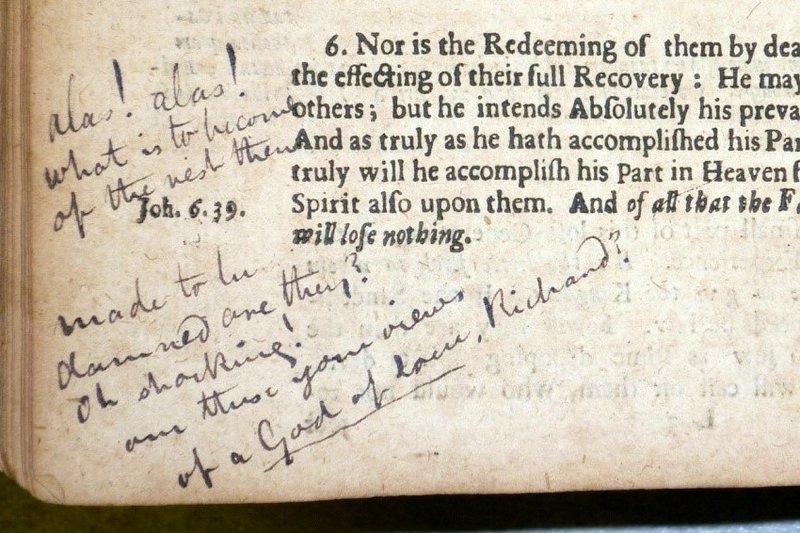 6. Nor is the Redeeming of them by dea
the effecting of their full Recovery : He may
others ; but he intends Abſolutely his preva
And as truly as he hath accompliſhed his Par
truly will he accompliſh his Part in Heaven
Spirit alſo upon them. And of all that the Fa
will loſe nothing.
alas! alas!
what is to become
of the rest then
Joh. 6. 39.
made to be
damned are they?
Oh shocking!
are these your views
of a God of love, Richard?